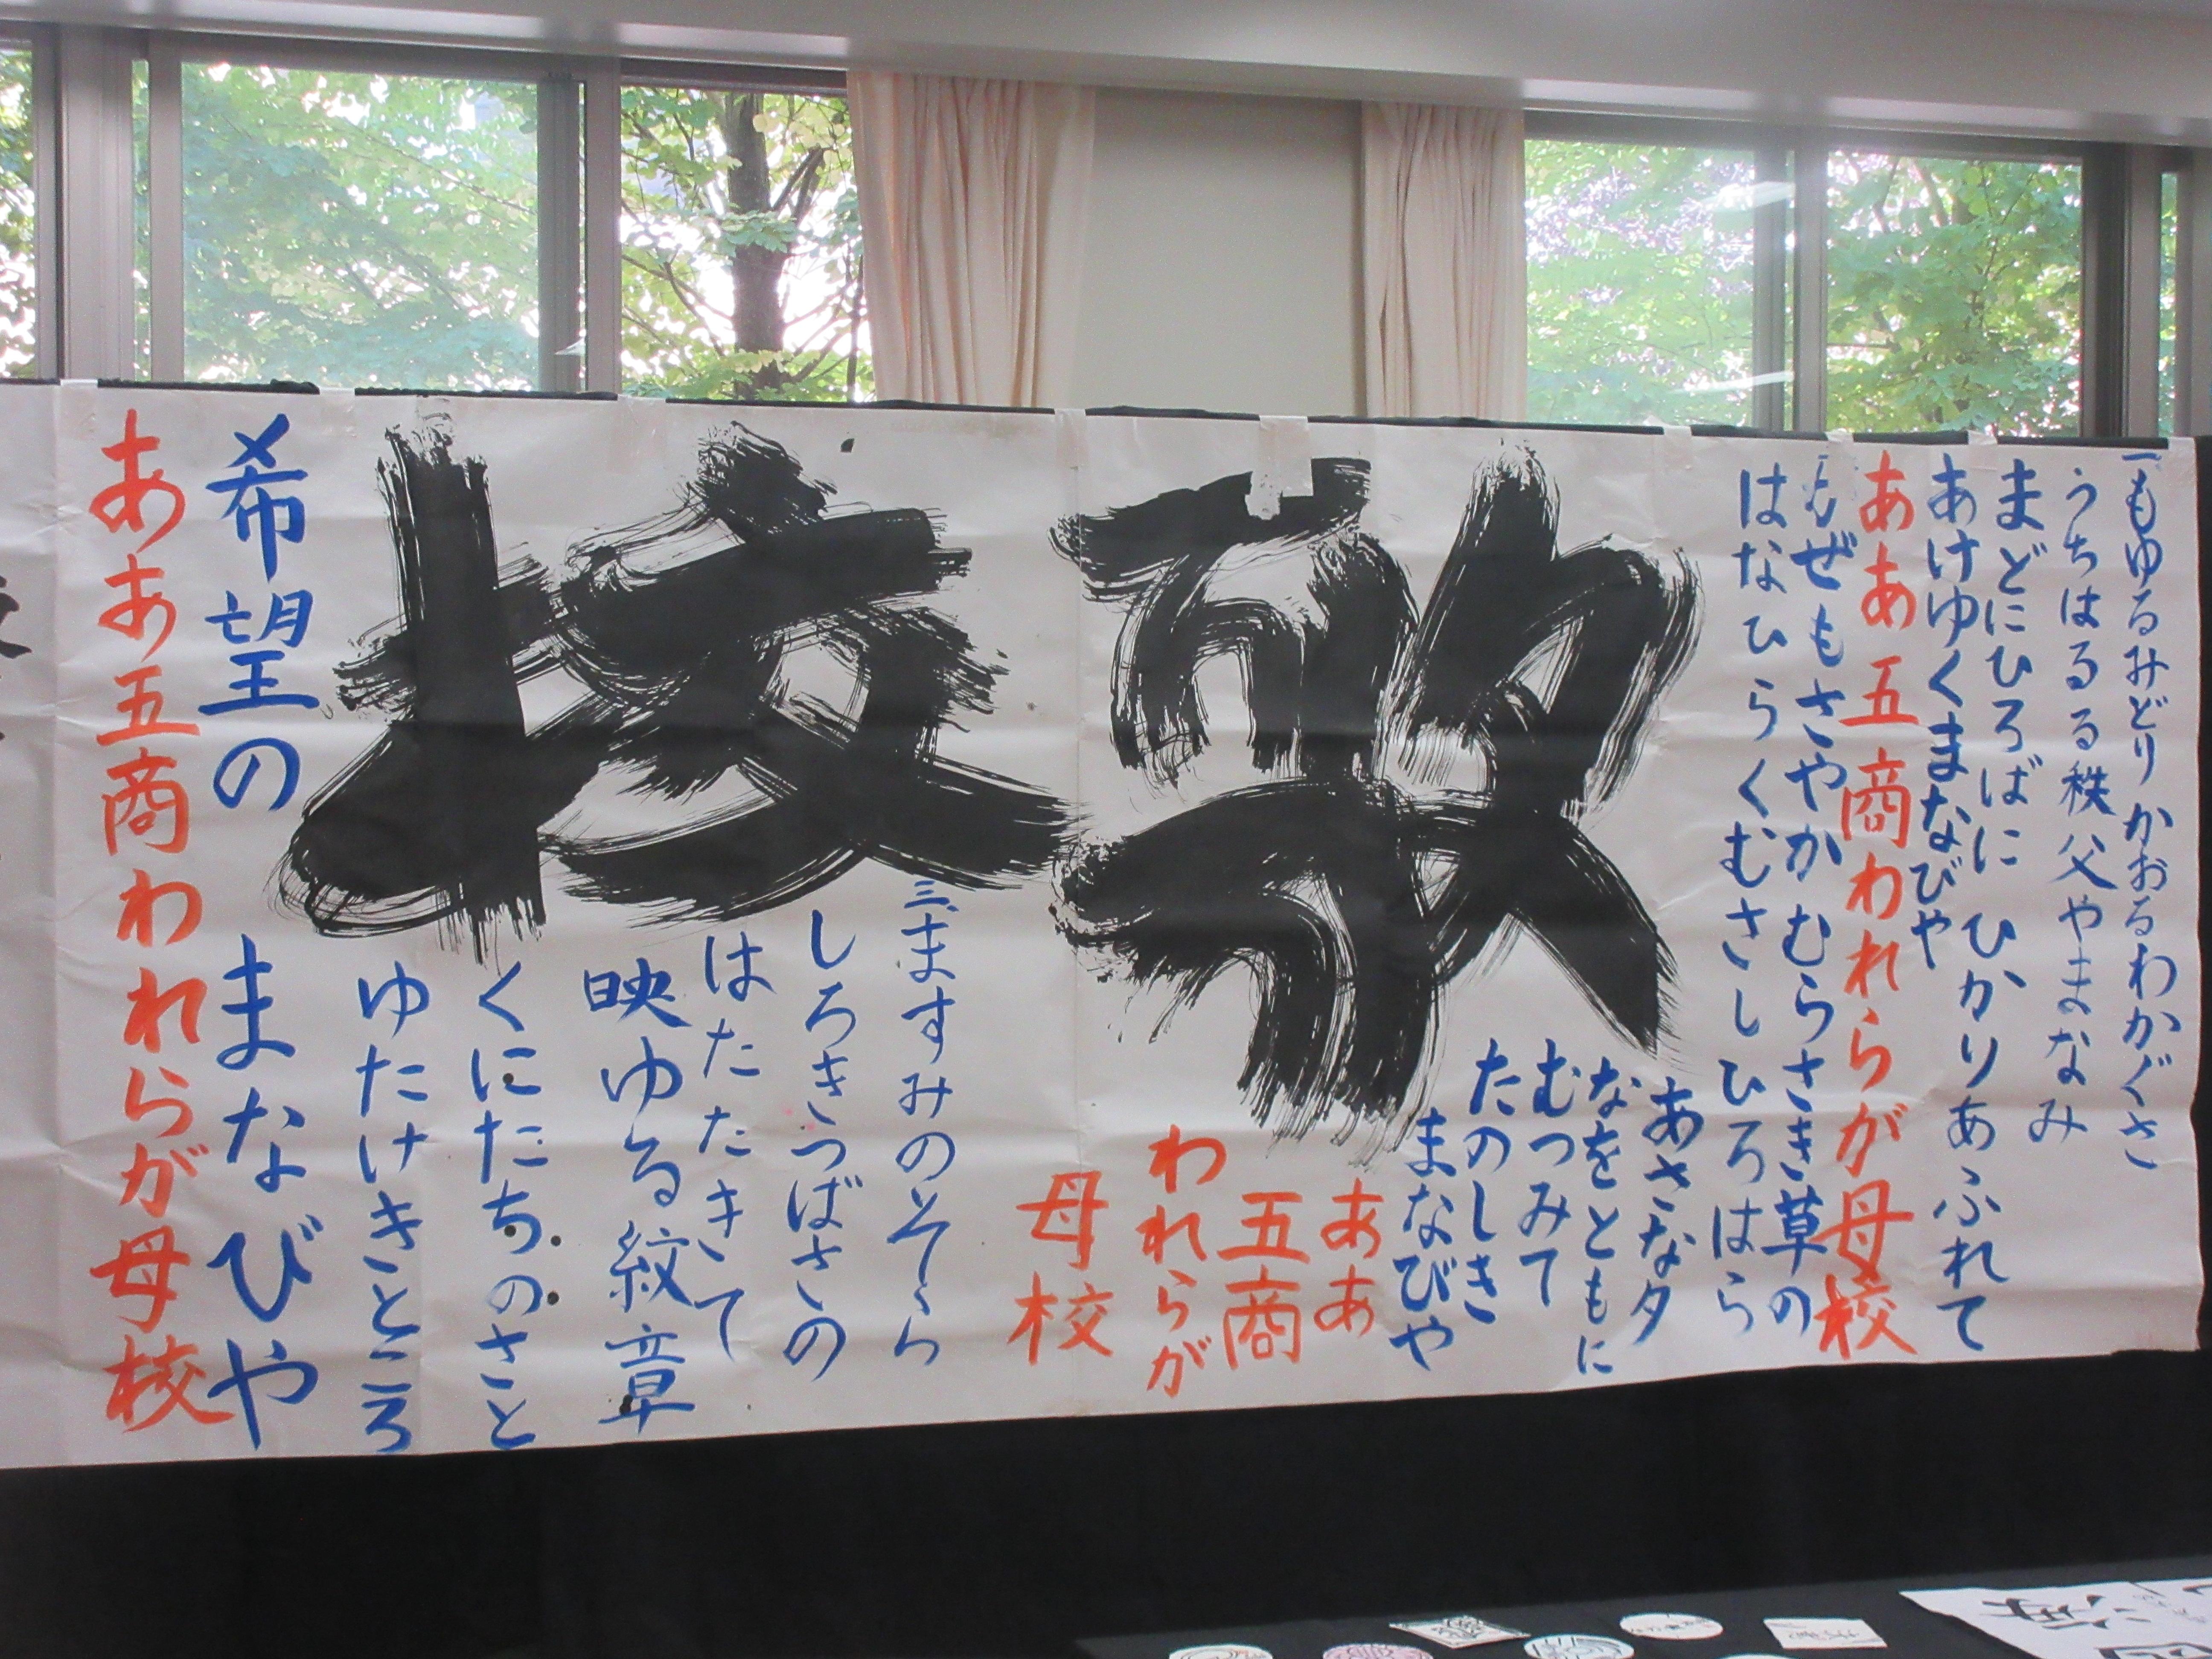 校歌
一もゆるみどりかおるわかぐさ
うちはるる秩父やまなみ
まどにひろばにひかりあふれて
あけゆくまなびや
ああ五商われらが母校
二かぜもさやかむらさき草の
はなひらくむさしひろはら
あさな夕
なをともに
むつみて
たのしき
まなびや
ああ
五商
われらが
母校
三ますみのそら
しろきつばさの
はたたきて
映ゆる紋章
くにたちのさと
ゆたけきところ
希望のまなびや
ああ五商われらが母校